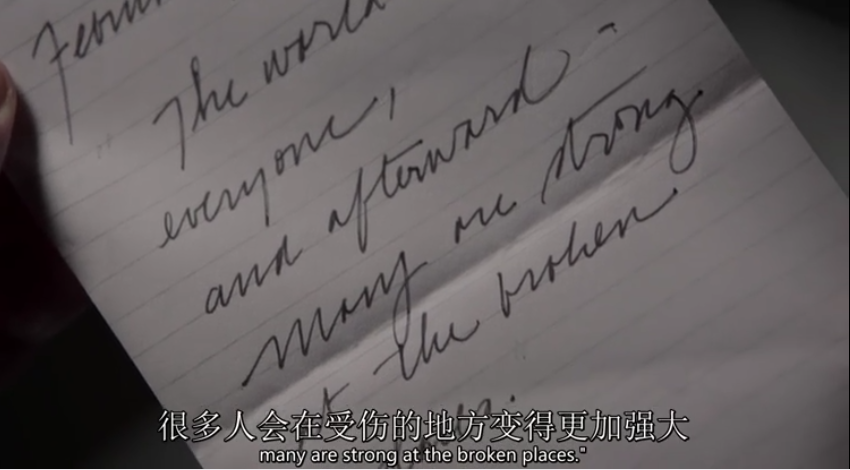 The world
everyone,
and afterward -
many are strong
at the broken
places.
很多人会在受伤的地方变得更加强大
many are strong at the broken places."